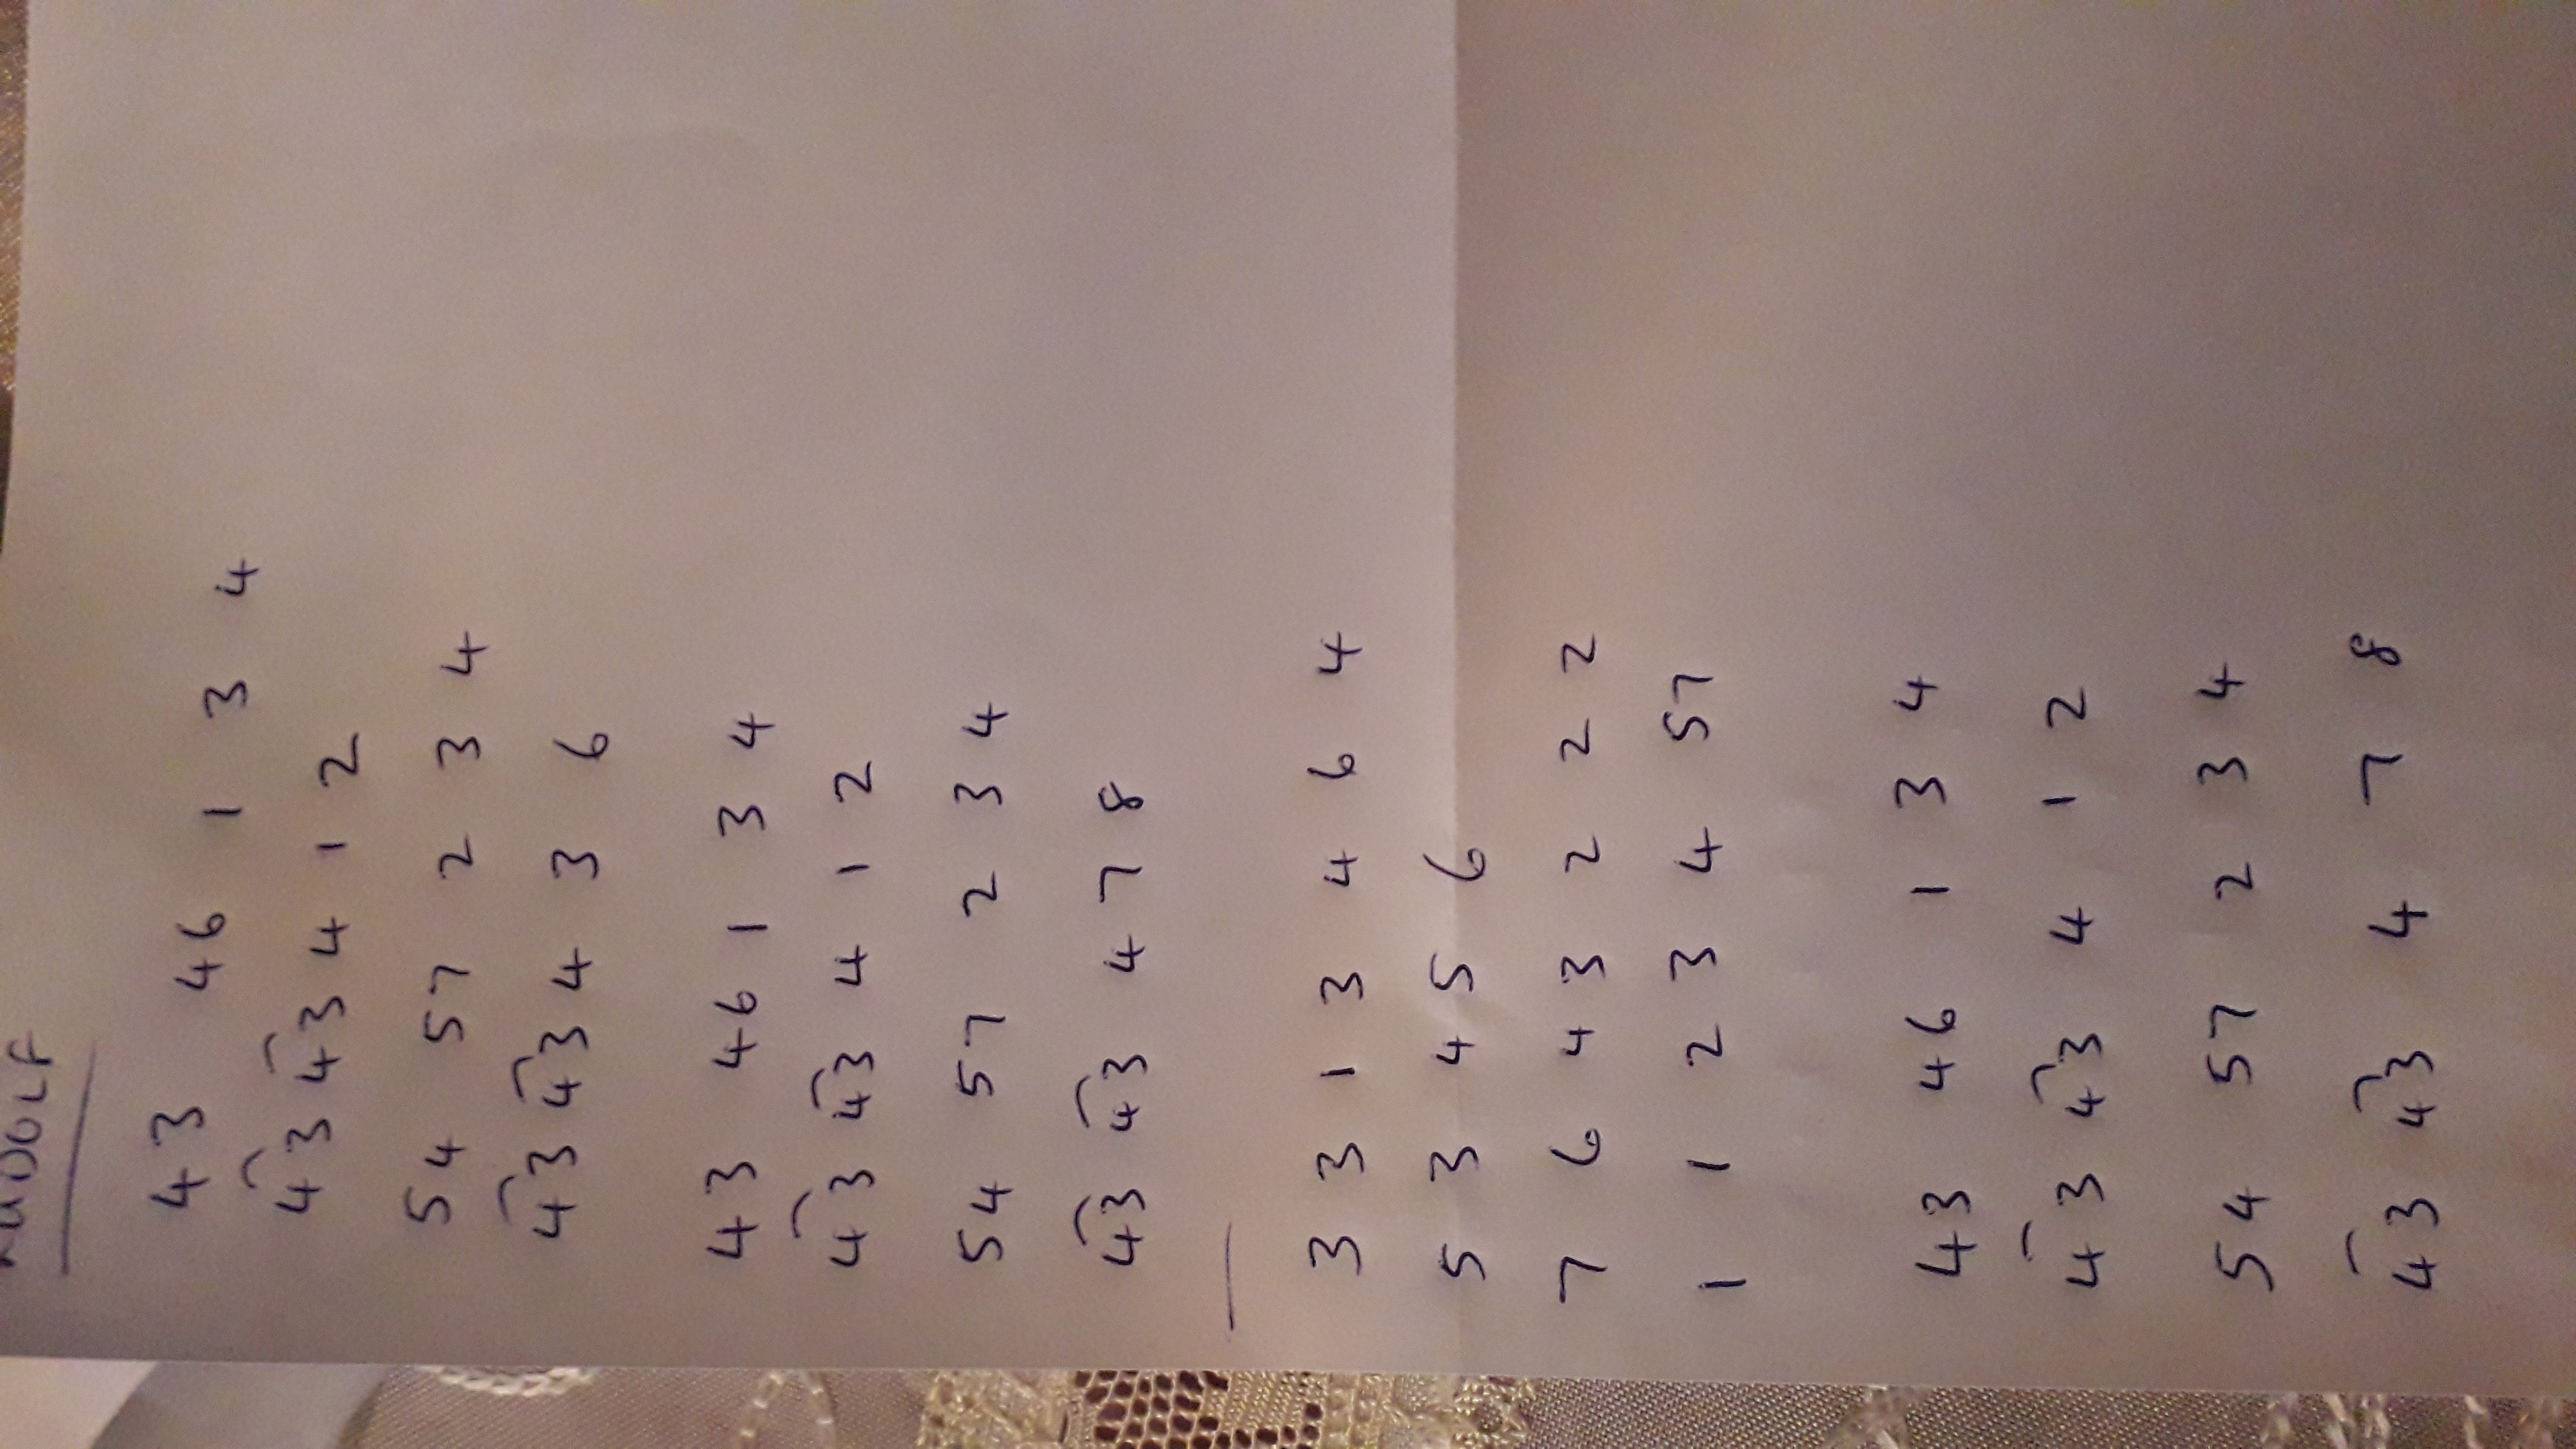 RUDOLF
43 46 1 3 4
43 43 4 1 2
54 57 2 3 4
43 43 4 3 6
43 46 1 3 4
43 43 4 1 2
54 57 2 3 4
43 43 4 7 8
3 3 1 3 4 6 4
5 3 4 5 6
7 6 4 3 2 2 2
1 1 2 3 4 57
43 46 1 3 4
43 43 4 1 2
54 57 2 3 4
43 43 4 7 8